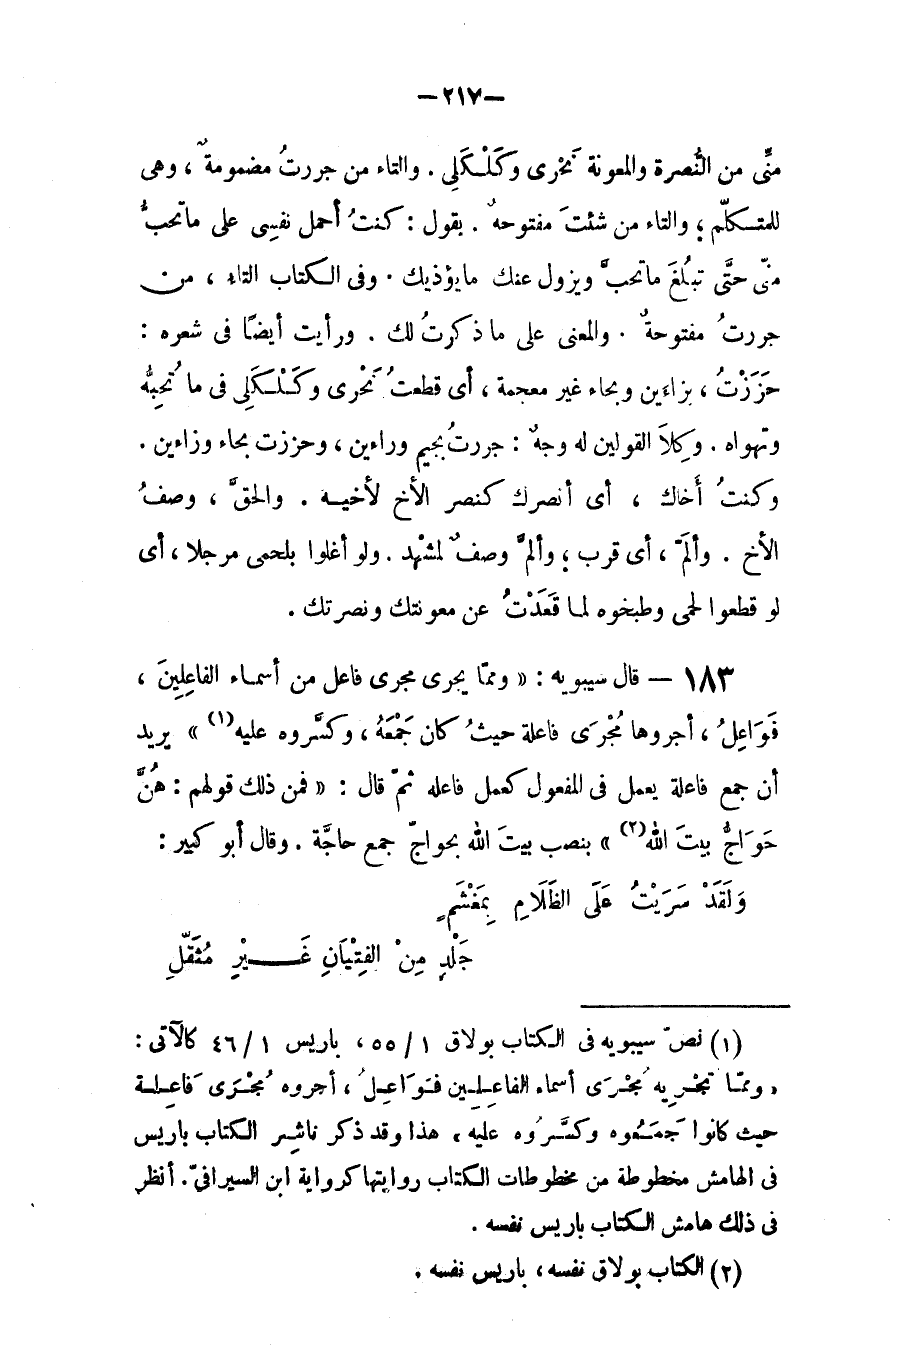 —٢١٧—
منِّى من النُّصرة والمعونة نَحْرى وكَلْكَلِى . والتاء من جررتُ مضمومةٌ ، وهى
للمتكلّم ؛ والتاء من شئتَ مفتوحةٌ . يقول : كنتُ أحمل نفسِى على ماتحبُّ
منّى حتَّى تبلُغَ ماتحبُّ ويزول عنك مايؤذيك . وفى الكتاب التاء ، من
جررتُ مفتوحةٌ . والمعنى على ما ذكرتُ لك . ورأيت أيضًا فى شعره :
حَزَزْتُ ، بزاءَين وبحاء غير معجمة ، أى قطعتُ نَحْرى وكَلْكَلِى فى ما تُحِبُّه
وتهواه . وكِلاَ القولين له وجهٌ : جررتُ بجيم وراءين ، وحززت بحاء وزاءين .
وكنتُ أخاك ، أى أنصرك كنصر الأخ لأخيه . والحقَّ ، وصفُ
الأخ . وألَمّ ، أى قرب ؛ وألمَّ وصفٌ لمشْهد . ولو أغلوا بلحمى مرجلا ، أى
لو قطعوا لحمى وطبخوه لما قَعَدْتُ عن معونتك ونصرتك .
١٨٣ — قال سيبويه : « وممّا يجرى مجرى فاعل من أسماء الفاعِلِينَ ،
فَوَاعِلُ ، أجروها مُجْرَى فاعلة حيثُ كان جَمْعَهُ ، وكسَّروه عليه(١) » يريد
أن جمع فاعلة يعمل فى المفعول كعمل فاعله ثمّ قال : « فمن ذلك قولهم : هُنَّ
حَوَاجُّ بيتَ الله(٢) » بنصب بيتَ الله بحواجّ جمع حاجَّة . وقال أبو كبير :
وَلَقَدْ سَرَيْتُ عَلَى الظَلَامِ بِمَغْشَمٍ
جَلْدٍ مِنْ الفِتْيَانِ غَيْرِ مُثَقَّلِ
(١) نصّ سيبويه فى الكتاب بولاق ١ / ٥٥ ، باريس ١ / ٤٦ كالآتى :
« وممّا تجْرِيه مُجْرَى أسماء الفاعِلِين فَوَاعِلُ ، أجروه مُجْرَى فَاعِلة
حيث كانوا جَمَعُوه وكسَّرُوه عليه ، هذا وقد ذكر ناشر الكتاب باريس
فى الهامش مخطوطة من مخطوطات الكتاب روايتها كرواية ابن السيرافىّ . أنظر
فى ذلك هامش الكتاب باريس نفسه .
(٢) الكتاب بولاق نفسه ، باريس نفسه .